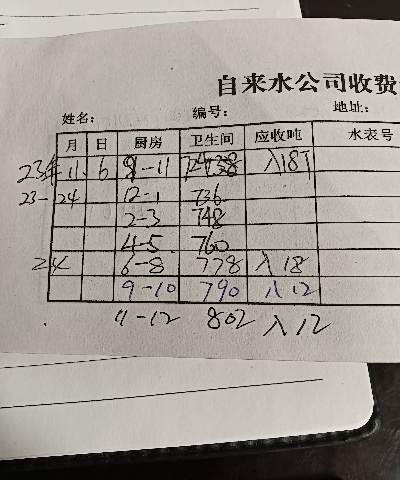 自来水公司收费
姓名: 编号: 地址:
月 日 厨房 卫生间 应收吨 水表号
23年 11. 6 9-11 入18T
23-24 12-1 736
2-3 748
4-5 760
24 6-8 778 入18
9-10 790 入12
11-12 802 入12